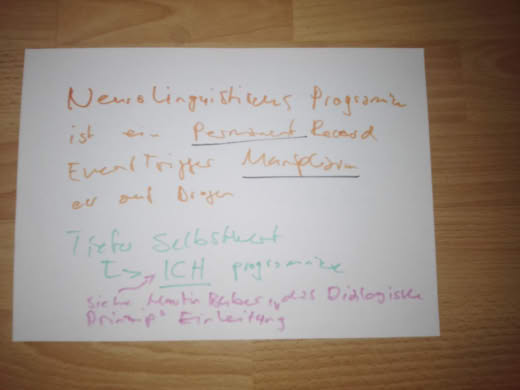 Neurolinguistisches Programmieren
ist ein Permanent Record
Event Trigger Manipulation
auf Drogen
Tiefer Selbstwert
ICH programmieren
siehe Martin Buber "das Dialogische
Prinzip" Einleitung